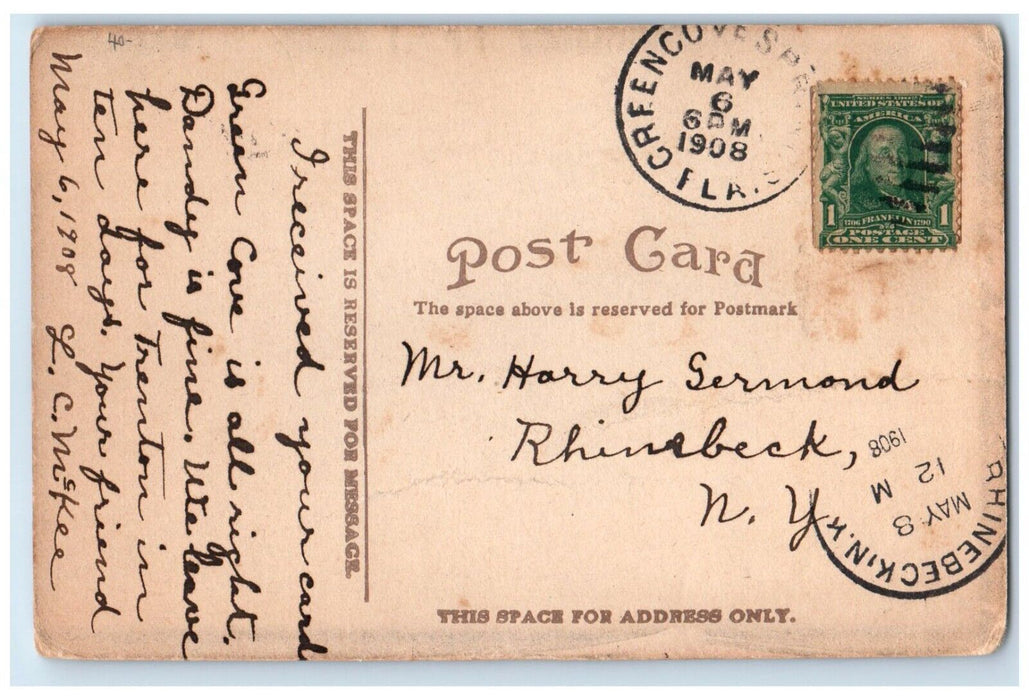 40-
I received your card
Green Cove is all right.
Dandy is fine. We leave
here for Trenton in
ten days. Your friend
May 6, 1908 L. C. McKee
THIS SPACE IS RESERVED FOR MESSAGE.
GREEN COVE SPR
MAY
6
6 PM
1908
FLA.
SERIES 1902
UNITED STATES OF
AMERICA
1 1
1706 FRANKLIN 1790
POSTAGE
ONE CENT
Post Card
The space above is reserved for Postmark
Mr. Harry Germond
Rhinebeck,
N. Y.
RHINEBECK N.Y.
MAY 8
12 M
1908
THIS SPACE FOR ADDRESS ONLY.